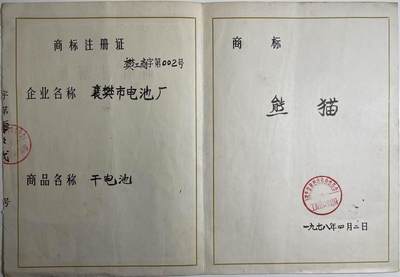 商标注册证
樊工商字第002号
企业名称 襄樊市电池厂
商品名称 干电池
字第
号
商标
熊猫
一九七八年四月二日